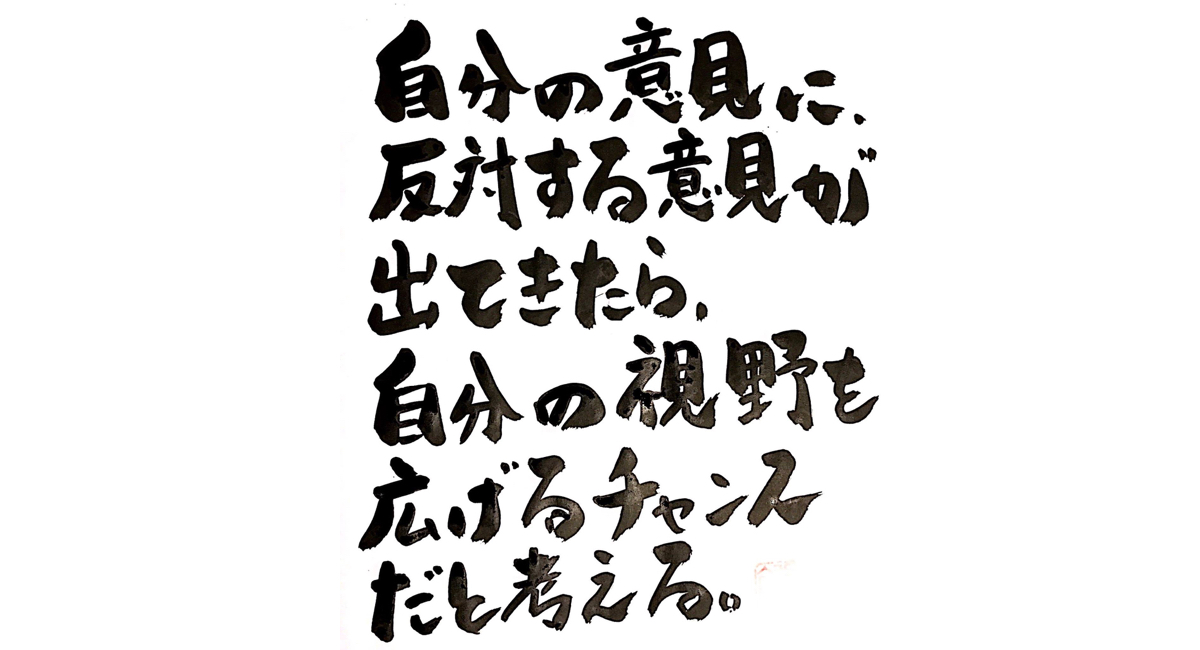 自分の意見に、
反対する意見が
出てきたら、
自分の視野を
広げるチャンス
だと考える。